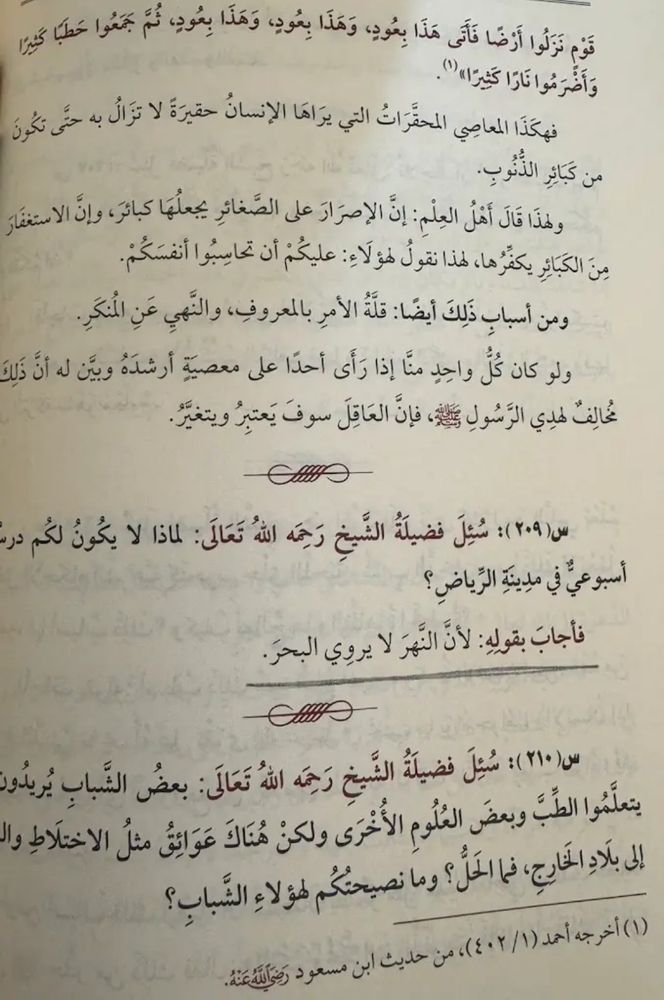 قَوْمٍ نَزَلُوا أَرْضًا فَأَتَى هَذَا بِعُودٍ، وَهَذَا بِعُودٍ، وَهَذَا بِعُودٍ، ثُمَّ جَمَعُوا حَطَبًا كَثِيرًا
وَأَضْرَمُوا نَارًا كَثِيرًا»(١).
فهكَذَا المعاصِي المحقَّرَاتُ التي يرَاهَا الإنسانُ حقيرَةً لا تزَالُ به حتَّى تكُونَ
من كَبَائِرِ الذُّنُوبِ.
ولهذَا قَالَ أَهْلُ العِلْمِ: إنَّ الإصرَارَ على الصَّغائرِ يجعلُهَا كبائرَ، وإنَّ الاستغفَارَ
مِنَ الكَبَائِرِ يكفِّرُها، لهذا نقولُ لهؤلَاءِ: عليكُمْ أن تحاسِبُوا أنفسَكُمْ.
ومن أسبابِ ذَلِكَ أيضًا: قلَّةُ الأمرِ بالمعروفِ، والنَّهيِ عَنِ المُنكَرِ.
ولو كان كُلُّ واحِدٍ منَّا إذا رَأَى أحدًا على معصيَةٍ أرشدَهُ وبيَّن له أنَّ ذَلِكَ
مُخالِفٌ لهدِي الرَّسُولِ ﷺ، فإنَّ العَاقِلَ سوفَ يَعتبِرُ ويتغيَّرُ.
س(٢٠٩): سُئِلَ فضيلَةُ الشَّيخِ رَحِمَه اللهُ تَعَالَى: لماذا لا يكُونُ لكُم درسٌ
أسبوعيٌّ في مدِينَةِ الرِّياضِ؟
فأجابَ بقولِهِ: لأنَّ النَّهرَ لا يروِي البحرَ.
س(٢١٠): سُئِلَ فضيلَةُ الشَّيخِ رَحِمَه اللهُ تَعَالَى: بعضُ الشَّبابِ يُريدُون
يتعلَّمُوا الطِّبَّ وبعضَ العُلُومِ الأُخْرَى ولكنْ هُنَاكَ عَوَائِقُ مثلُ الاختلَاطِ
إلى بلَادِ الخَارِجِ، فما الحَلُّ؟ وما نصيحتُكُم لهؤلاءِ الشَّبابِ؟
(١) أخرجه أحمد (١/ ٤٠٢)، من حديث ابن مسعود رَضِيَ اللهُ عَنْهُ.